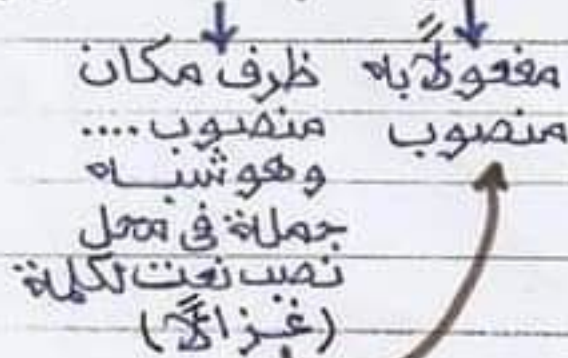 مفعولاً به ظرف مكان
منصوب منصوب....
وهو شبه
جملة في محل
نصب نعت لكلمة
(غزالاً)